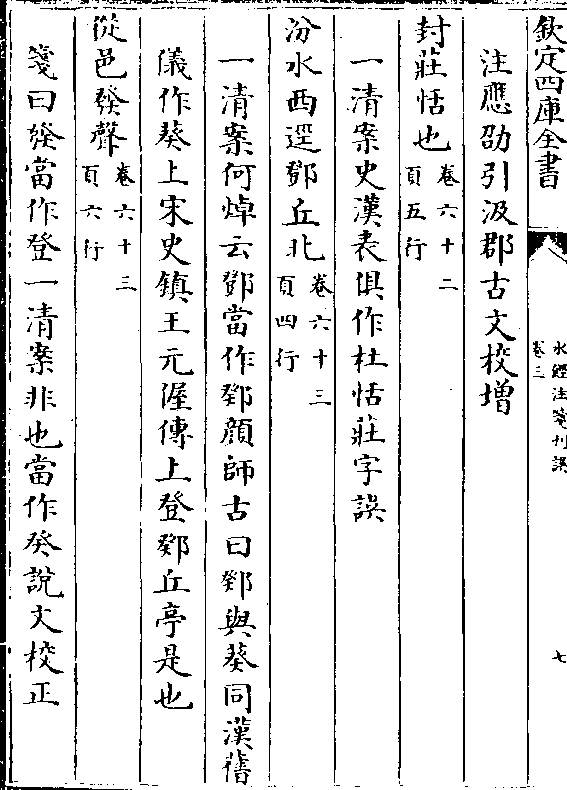 欽定四庫全書
水經注箋刊誤
卷三
七
注應劭引汲郡古文校增
封莊恬也
卷六十二
頁五行
一清案史漢表俱作杜恬莊字誤
汾水西逕鄧丘北
卷六十三
頁四行
一清案何焯云鄧當作鄈顔師古曰鄈與葵同漢舊
儀作葵上宋史鎮王元偓傳上登鄈丘亭是也
從邑發聲
卷六十三
頁六行
箋曰發當作登一清案非也當作癸說文校正